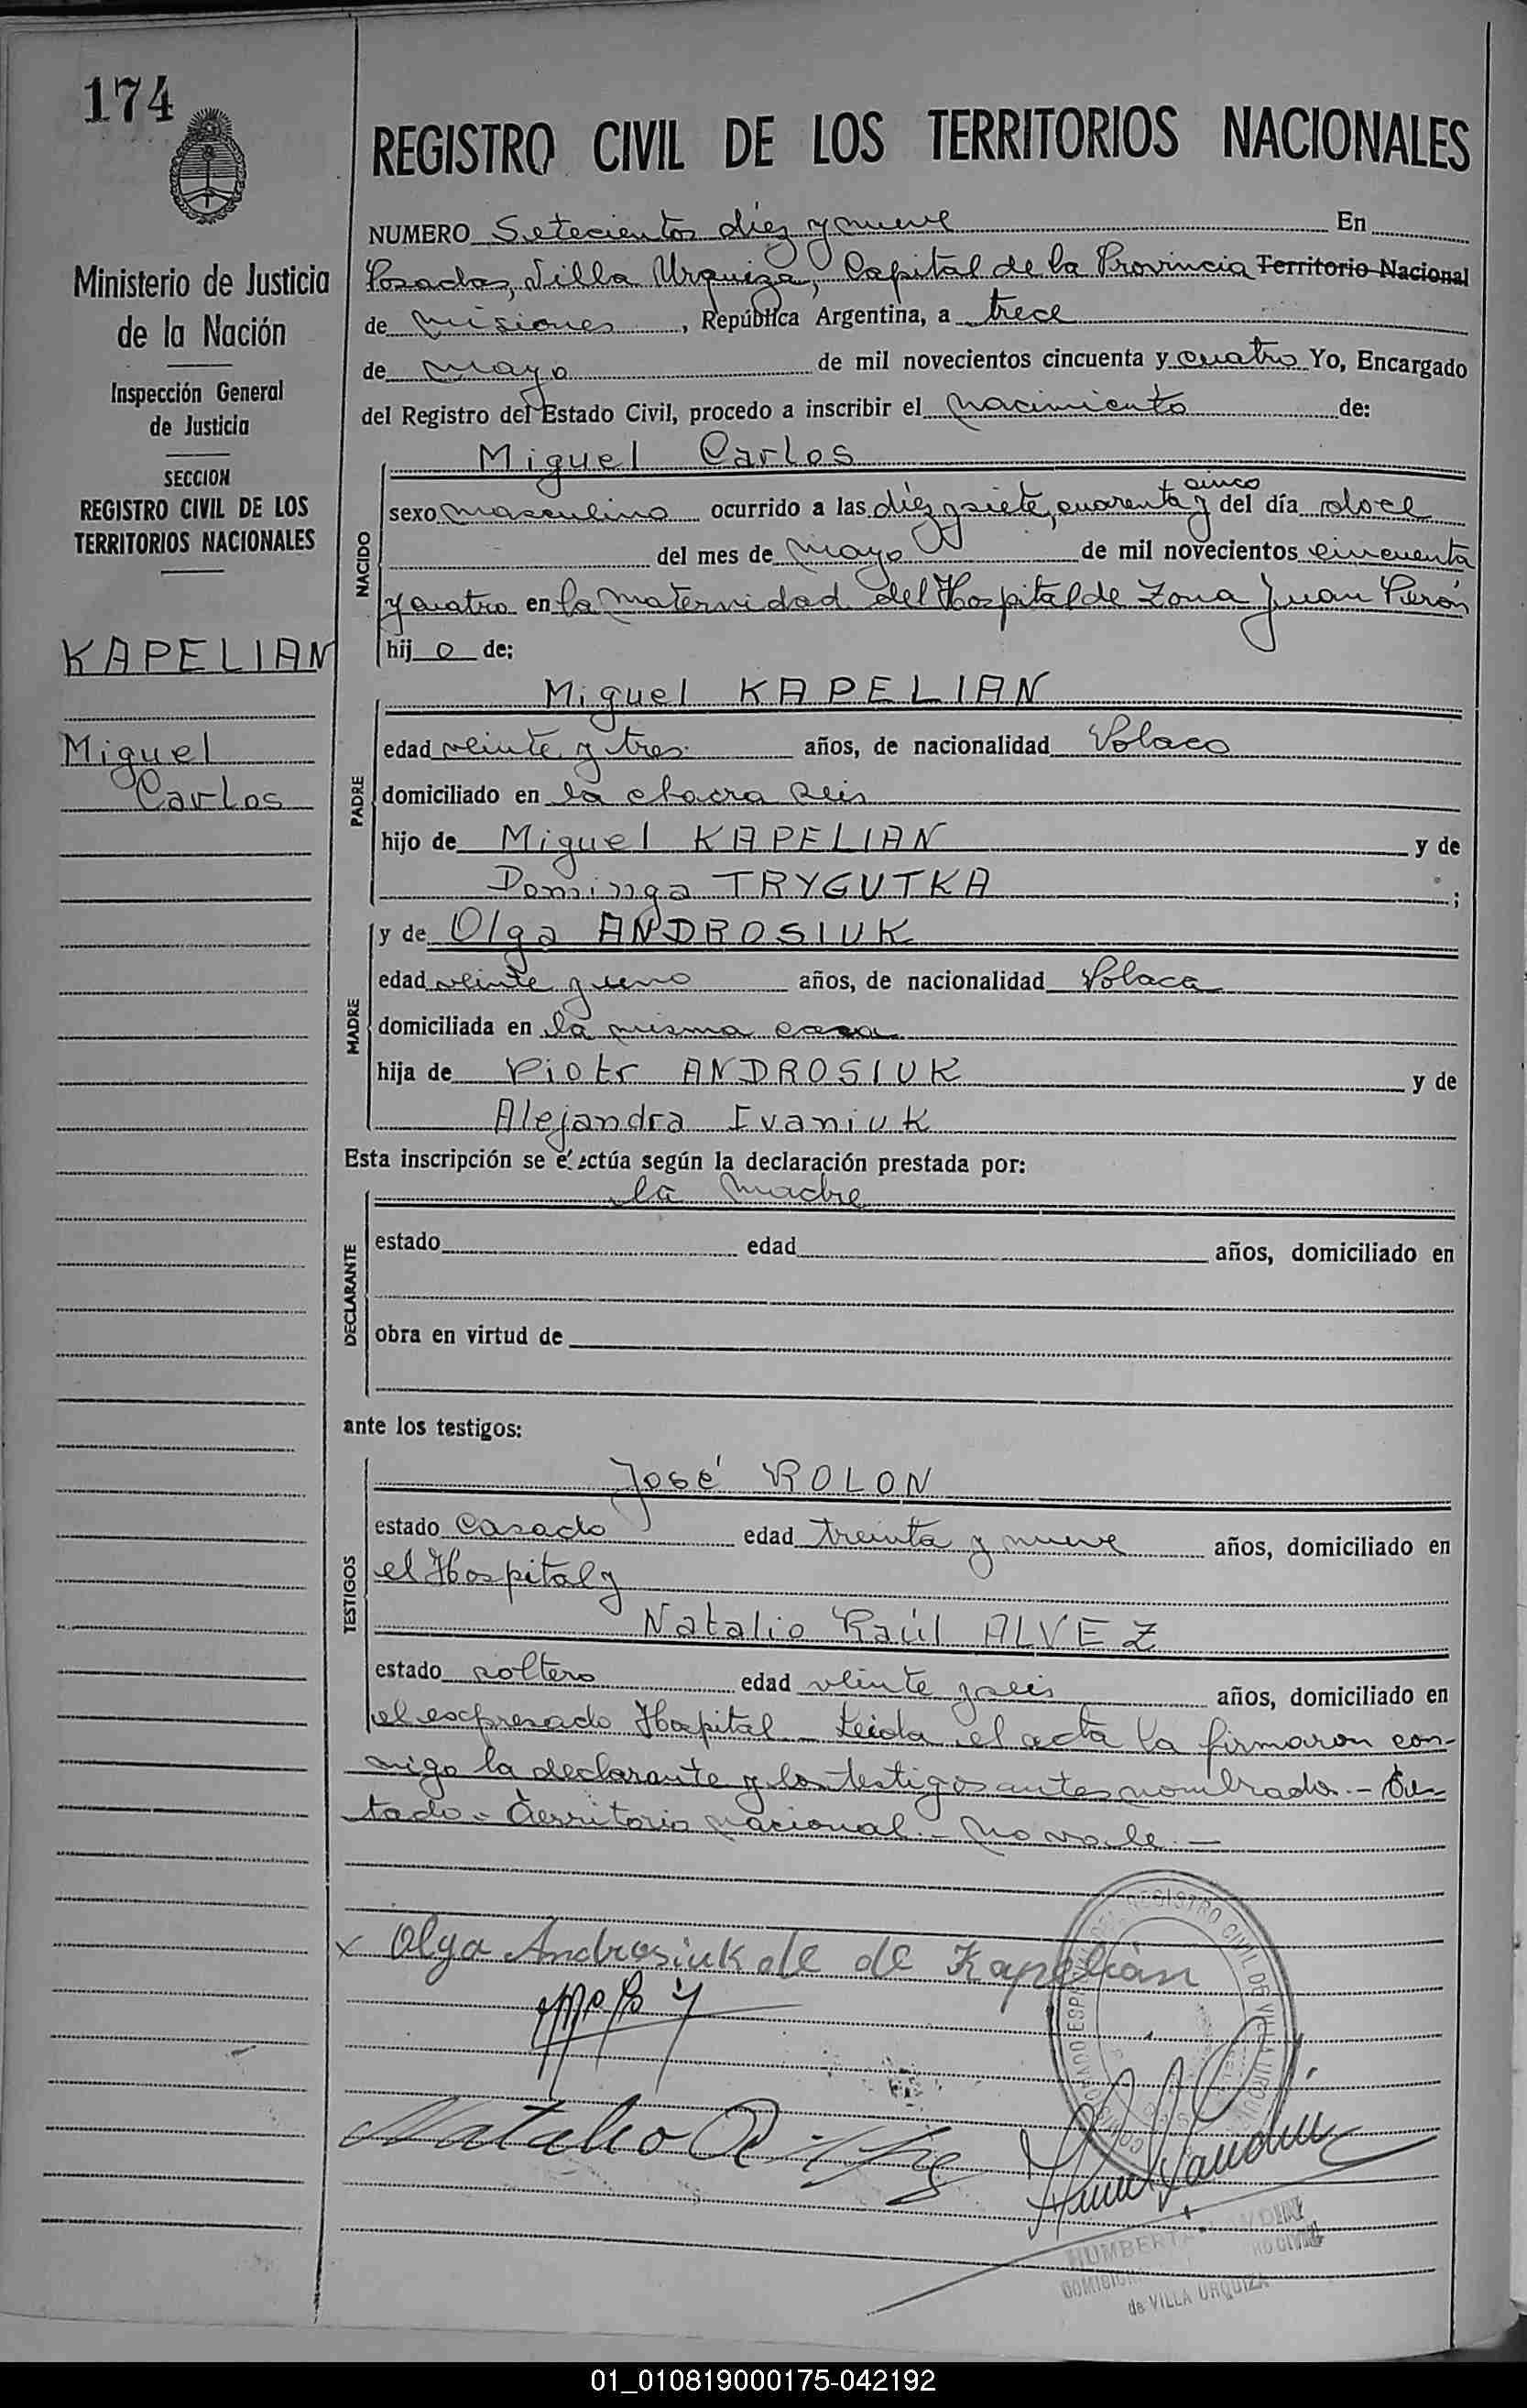 174
REGISTRO CIVIL DE LOS TERRITORIOS NACIONALES
Ministerio de Justicia
de la Nación
Inspección General
de Justicia
SECCION
REGISTRO CIVIL DE LOS
TERRITORIOS NACIONALES
KAPELIAN
Miguel
Carlos
NUMERO Setecientos diez y nueve En
Posadas, Villa Urquiza, Capital de la Provincia Territorio Nacional
de Misiones, República Argentina, a trece
de mayo de mil novecientos cincuenta y cuatro Yo, Encargado
del Registro del Estado Civil, procedo a inscribir el nacimiento de:
NACIDO
Miguel Carlos
cinco
sexo masculino ocurrido a las diez y siete, cuarenta y del día doce
del mes de mayo de mil novecientos cincuenta
y cuatro en la maternidad del Hospital de Zona Juan Perón
hijo de:
PADRE
Miguel KAPELIAN
edad veinte y tres años, de nacionalidad Polaco
domiciliado en la chacra seis
hijo de Miguel KAPELIAN y de
Dominga TRYGUTKA ;
MADRE
y de Olga ANDROSIUK
edad veinte y uno años, de nacionalidad Polaca
domiciliada en la misma casa
hija de Piotr ANDROSIUK y de
Alejandra Ivaniuk
Esta inscripción se efectúa según la declaración prestada por:
DECLARANTE
la madre
estado edad años, domiciliado en
obra en virtud de
ante los testigos:
TESTIGOS
José ROLON
estado casado edad treinta y nueve años, domiciliado en
el Hospital y
Natalio Raúl ALVEZ
estado soltero edad veinte y seis años, domiciliado en
el expresado Hospital. Leida el acta la firmaron con-
migo la declarante y los testigos antes nombrados.- Tes-
tado = Territorio Nacional.- No vale.-
x Olga Androsiuk de de Kapelian
REGISTRO CIVIL DE VILLA URQUIZA
de VILLA URQUIZA
01_010819000175-042192